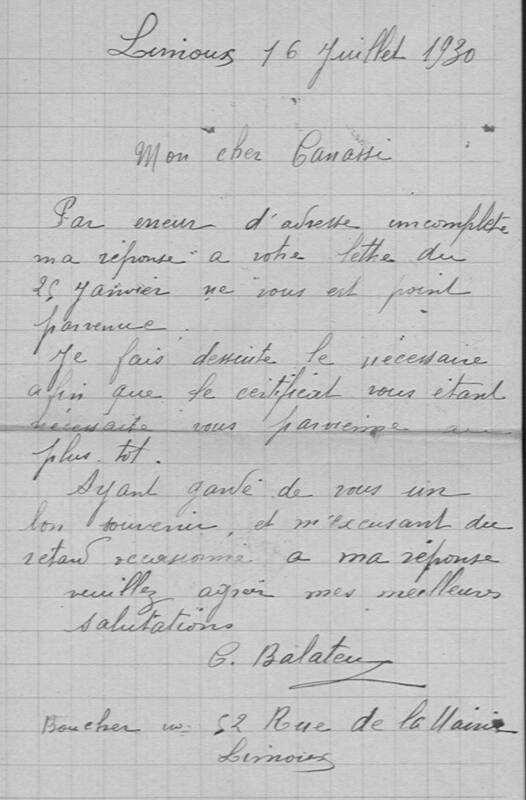 Limoux 16 Juillet 1930
Mon cher Canassi
Par erreur d'adresse incomplète
ma réponse a votre lettre du
25 Janvier ne vous est point
parvenue.
Je fais dessuite le nécessaire
afin que le certificat vous étant
nécessaire vous parvienne au
plus tot.
Ayant gardé de vous un
bon souvenir, et m'excusant du
retard occasionné a ma réponse
veuillez agréer mes meilleures
salutations
C. Balateu
Boucher 52 Rue de la Mairie
Limoux